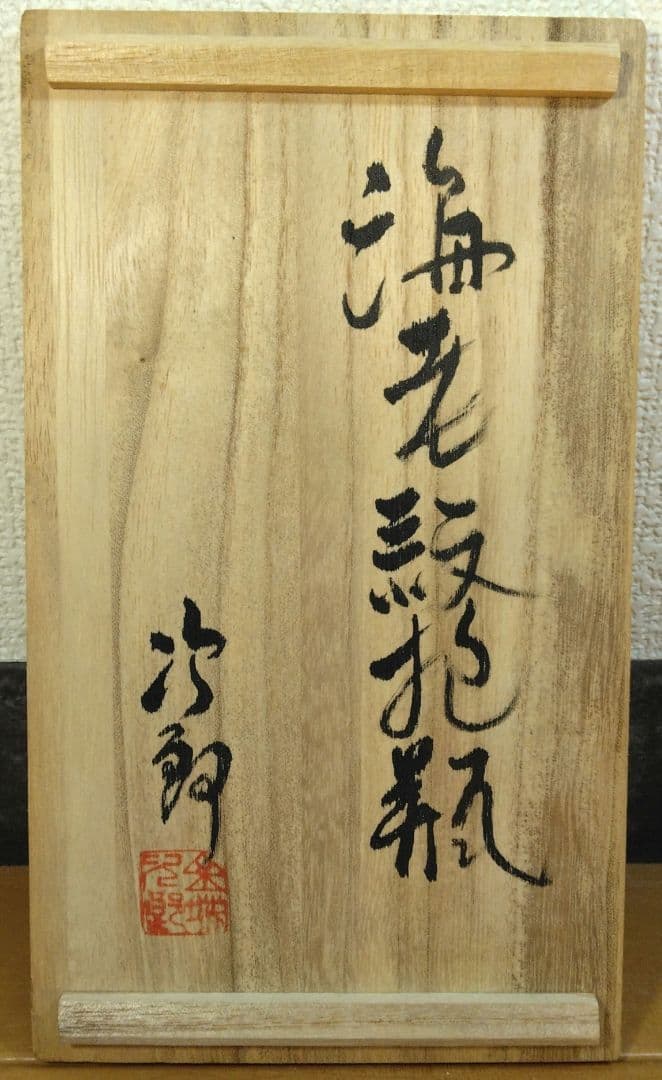 海老紋抱瓶
次郎